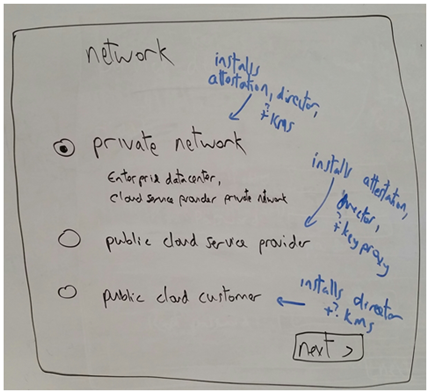 network
installs
attestation, director,
?
+ KMS
private network
Enterprise datacenter,
cloud service provider private network
installs attestation,
director,
?
+ key proxy
public cloud service provider
public cloud customer
installs director
+? kms
next >